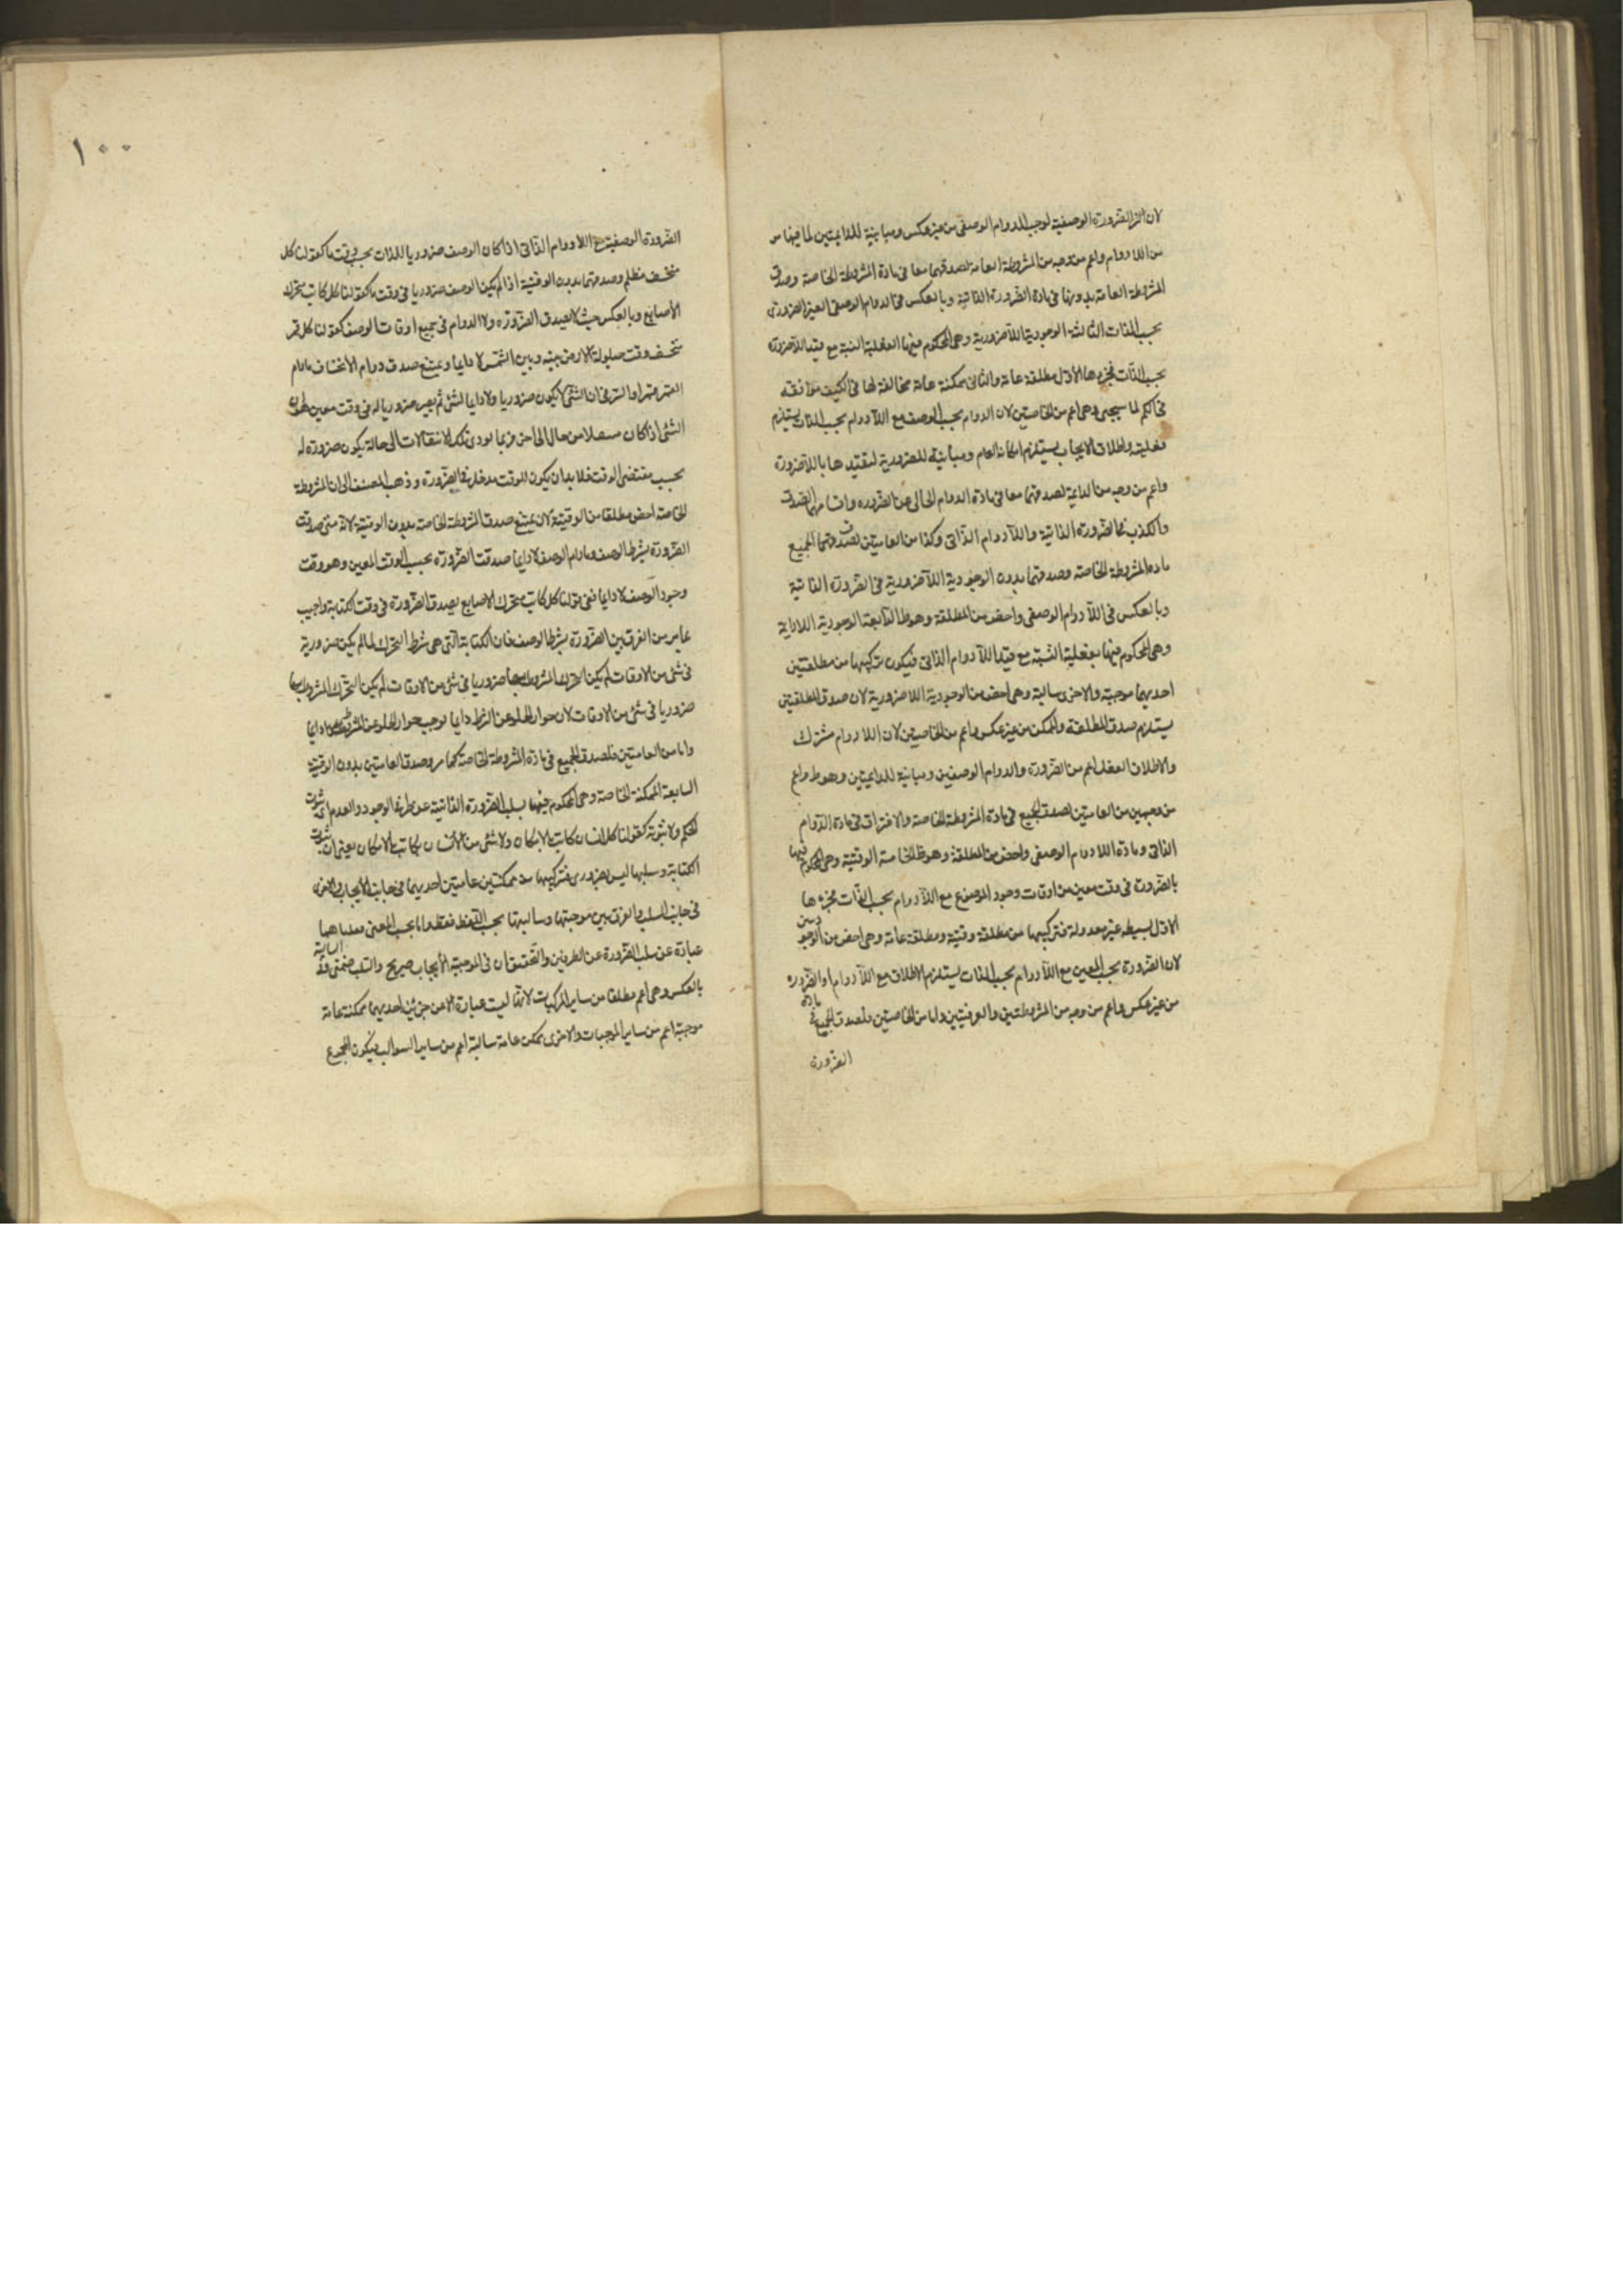 لان الضرورة الوصفية توجب الدوام الوصفى من غير عكس ومباينة للدايمتين لما فيها من
من اللا دوام واعم من وجه من المشروطة العامة لصدقهما معا فى مادة المشروطة الخاصة وصدق
المشروطة العامة بدونها فى مادة الضرورة الذاتية وبالعكس فى الدوام الوصفى الغير الضرورى
بحسب الذات الثالثة الوجودية اللاضرورية وهى المحكوم فيها بفعلية النسبة مع قيد اللاضرورة
بحسب الذات فجزءها الاول مطلقة عامة والثانى ممكنة عامة مخالفة لها فى الكيف موافقه
فى الكم لما سيجيى وهى اعم من الخاصتين لان الدوام بحسب الوصف مع اللا دوام بحسب الذات يستلزم
فعليته واطلاق الايجاب يستلزم امكانه العام ومباينة للضرورية لتقييدها باللاضرورة
واعم من وجه من الدايمة لصدقهما معا فى مادة الدوام الخالى عن الضرورة
والكذب فى الضرورة الذاتية واللا دوام الذاتى وكذا من العامتين لصدق الجميع
مادة المشروطة الخاصة وصدقهما بدون الوجودية اللاضرورية فى الضرورة الذاتية
وبالعكس فى اللا دوام الوصفى واخص من المطلقة وهو ظ الرابعة الوجودية اللادايمة
وهى المحكوم فيها بفعلية النسبة مع قيد اللا دوام الذاتى فيكون تركيبها من مطلقتين
احديهما موجبة والاخرى سالبة وهى اخص من الوجودية اللاضرورية لان صدق المطلقتين
يستلزم صدق المطلقة والممكن من غير عكس واعم من الخاصتين لان اللا دوام مشترك
والاطلاق الفعلى اعم من الضرورة والدوام الوصفيين ومباينة للدايمتين وهو ظ واعم
من وجهين من العامتين لصدق الجميع فى مادة المشروطة الخاصة والافتراق فى مادة الدوام
الذاتى ومادة اللا دوام الوصفى واخص من المطلقة وهو ظ الخامسة الوقتية وهى المحكوم فيها
بالضرورة فى وقت معين من اوقات وجود الموضوع مع اللا دوام بحسب الذات فجزءها
الاول بسيطه غير معدولة فتركيبها من مطلقة وقتية ومطلقة عامة وهى اخص من الوجوديتين
لان الضرورة بحسب المعين مع اللا دوام بحسب الذات يستلزم الاطلاق مع اللا دوام او الضرورة
من غير عكس واعم من وجه من المشروطتين والعرفيتين واما من الخاصتين فلصدق الجميع فى مادة
الضرورة
١٠٠
الضرورة الوصفية مع اللا دوام الذاتى اذا كان الوصف ضروريا للذات بحسب وقت ما كقولنا كل
منخسف مظلم وصدقهما بدون الوقتية اذا لم يكن الوصف ضروريا فى وقت ما كقولنا كل كاتب متحرك
الاصابع وبالعكس حيث لا يصدق الضرورة ولا الدوام فى جميع اوقات الوصف كقولنا كل قمر
منخسف وقت حيلولة الارض بينه وبين الشمس لا دايما ويمتنع صدق دوام الانخساف مادام
القمر قمرا والسر فى ان الشئ لا يكون ضروريا ولا دايما لشئ ثم يصير ضروريا له فى وقت معين
الشئ اذا كان منتقلا من حال الى اخر فربما يودى تلك الانتقالات الى حالة يكون ضرورة له
بحسب مقتضى الوقت فلا بد ان يكون للوقت مدخل فى الضرورة وذهب المصنف الى ان المشروطة
الخاصة اخص مطلقا من الوقتية لان يمتنع صدق المشروطة الخاصة بدون الوقتية لانه متى صدقت
الضرورة بشرط الوصف ومادام الوصف لا دايما صدقت الضرورة بحسب الوقت المعين وهو وقت
وجود الوصف لا دايما ففى قولنا كل كاتب متحرك الاصابع يصدق الضرورة فى وقت الكتابة واجيب
بما مر من الفرق بين الضرورة بشرط الوصف فان الكتابة التى هى شرط التحرك لما لم يكن ضرورية
فى شئ من الاوقات لم يكن التحرك المشروط بها ضروريا فى شئ من الاوقات لم يكن التحرك المشروط بها
ضروريا فى شئ من الاوقات لان جواز الخلو عن الشرط دايما توجب جواز الخلو عن المشروط دايما
واما من العامتين فلصدق الجميع فى مادة المشروطة الخاصة كما مر وصدق العامتين بدون الوقتية
السابعة الممكنة الخاصة وهى المحكوم فيها بسلب الضرورة الذاتية عن طرفى الوجود والعدم اى ثبوت
الحكم ولا ثبوته كقولنا كل انسان كاتب بالامكان ولا شئ من الانسان بكاتب بالامكان يعنى ان ثبوت
الكتابة وسلبها ليس بضرورى فتركيبها من ممكنتين عامتين احديهما فى جانب الايجاب والاخرى
فى جانب السلب والفرق بين موجبتها وسالبتها بحسب اللفظ فقط واما بحسب المعنى فمعناهما
عبارة عن سلب الضرورة عن الطرفين والتحقيق ان فى الموجبة الايجاب صريح والسلب ضمنى وفى السالبة
بالعكس وهى اعم مطلقا من ساير المركبات لانها ليست عبارة الا عن جزئين احديهما ممكنة عامة
موجبة اعم من ساير الموجبات والاخرى ممكن عامة سالبة اعم من ساير السوالب فيكون المجموع